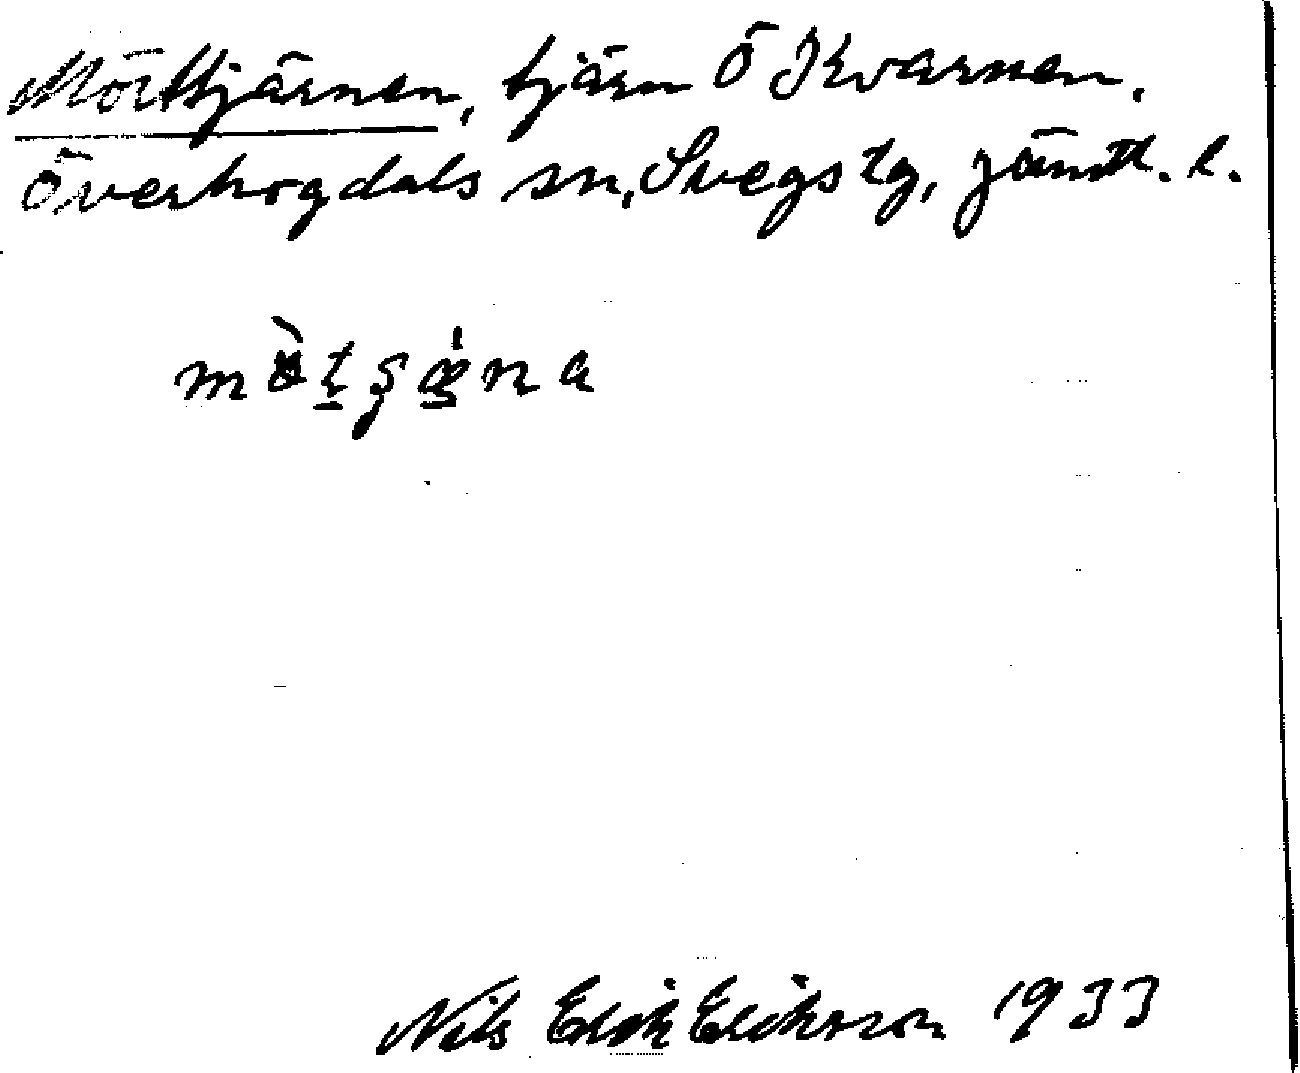 Mörttjärnen, tjärn Ö Kvarnen.
Överhogdals sn, Svegs tg, Jämtl. l.
Nils Erik Eriksson 1933